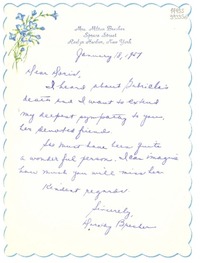 Mrs. Milton Brecher
Spruce Street
Roslyn Harbor, New York
January 18, 1957
Dear Doris,
I heard about
death and I want to extend
my deepest sympathy to you,
her devoted friend.
She must have been quite
a wonderful person. I can imagine
how much you will miss her.
Kindest regards
Sincerely,
Brecher